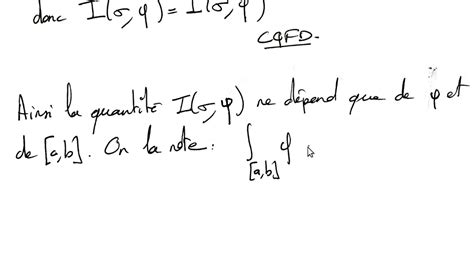 donc I(σ, φ) = I(σ, φ)
CQFD.
Ainsi la quantité I(σ, φ) ne dépend que de φ et
de [a,b]. On la note : ∫_{[a,b]} φ